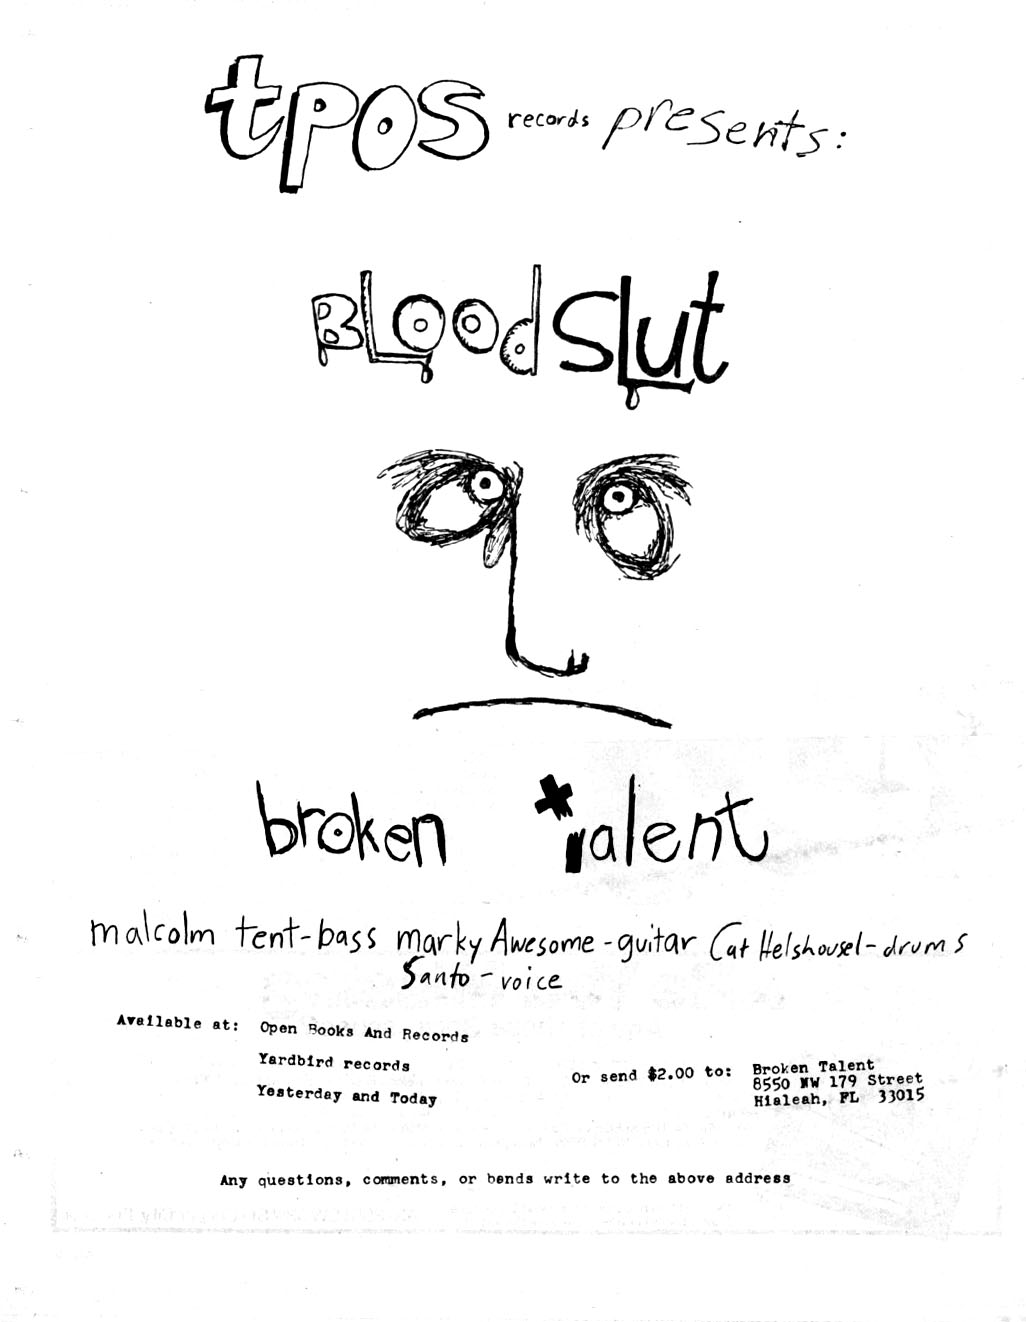 tpos records presents:
BLood SLut
broken talent
malcolm tent-bass marky Awesome-guitar Cat Helshousel-drums
Santo-voice
Available at: Open Books And Records
Yardbird records
Yesterday and Today
Or send $2.00 to: Broken Talent
8550 NW 179 Street
Hialeah, FL 33015
Any questions, comments, or bends write to the above address